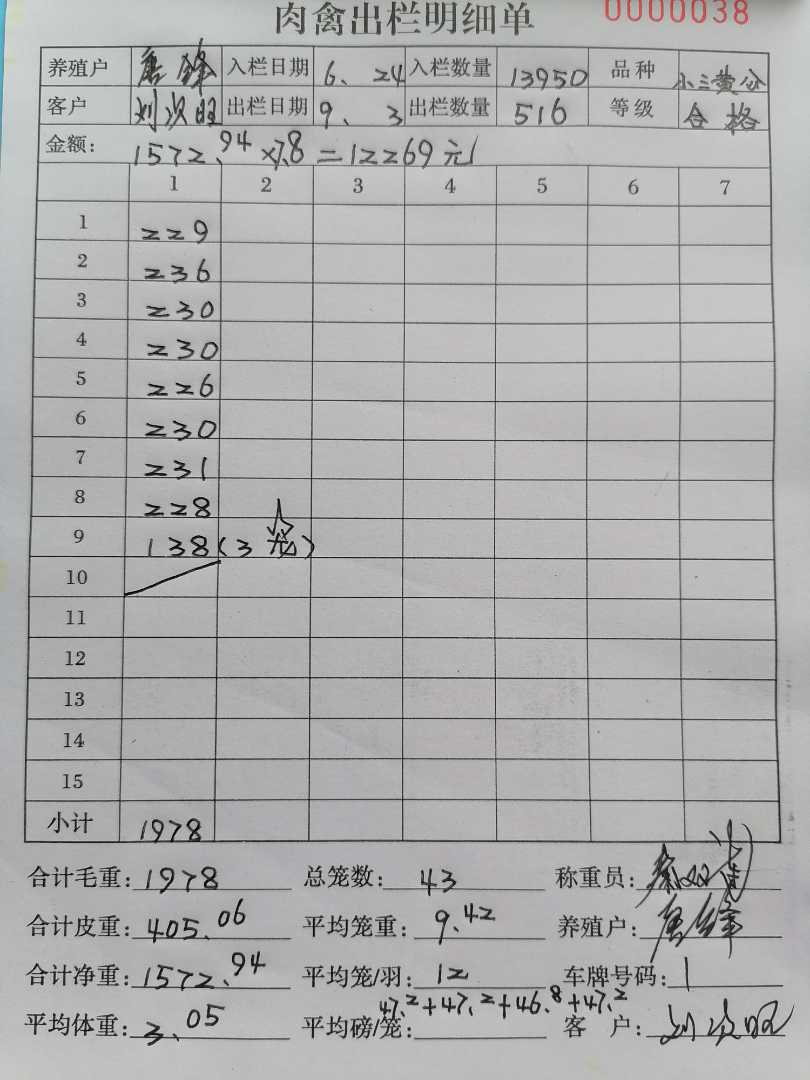 肉禽出栏明细单 0000038
养殖户 唐锋 入栏日期 6、24 入栏数量 13950 品种 小三黄公
客户 刘次旺 出栏日期 9、3 出栏数量 516 等级 合格
金额： 1572.94×7.8=12269元
1 2 3 4 5 6 7
1 229
2 236
3 230
4 230
5 226
6 230
7 231
8 228
9 138(3笼)
10
11
12
13
14
15
小计 1978
合计毛重：1978 总笼数：43 称重员：
合计皮重：405.06 平均笼重：9.42 养殖户：唐锋
合计净重：1572.94 平均笼/羽：12 车牌号码：1
平均体重：3.05 平均磅/笼：47.2+47.2+46.8+47.2 客 户：刘次旺